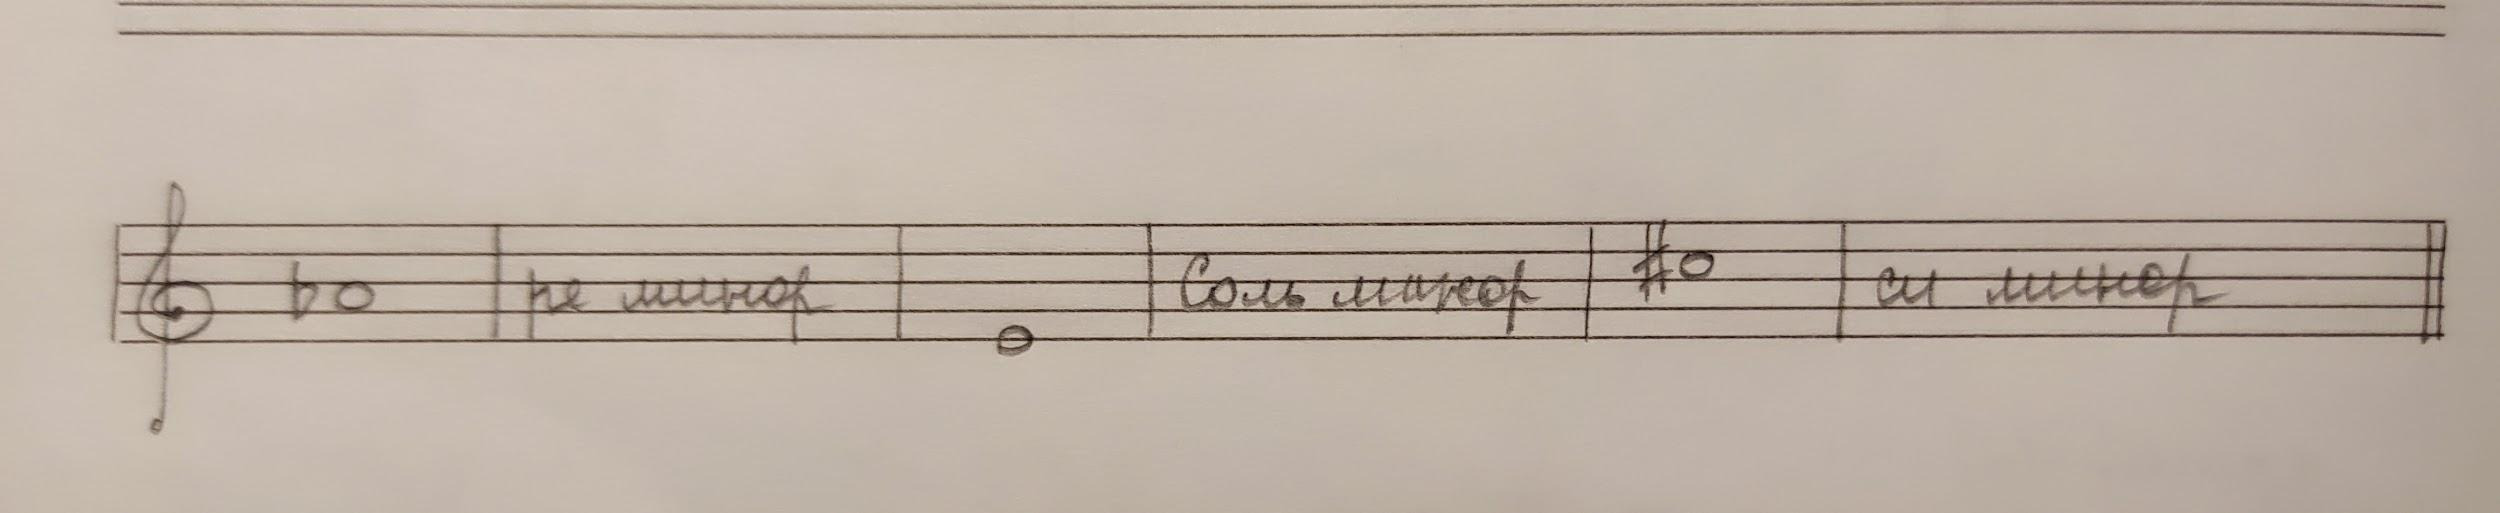 ре минор Соль минор си минор